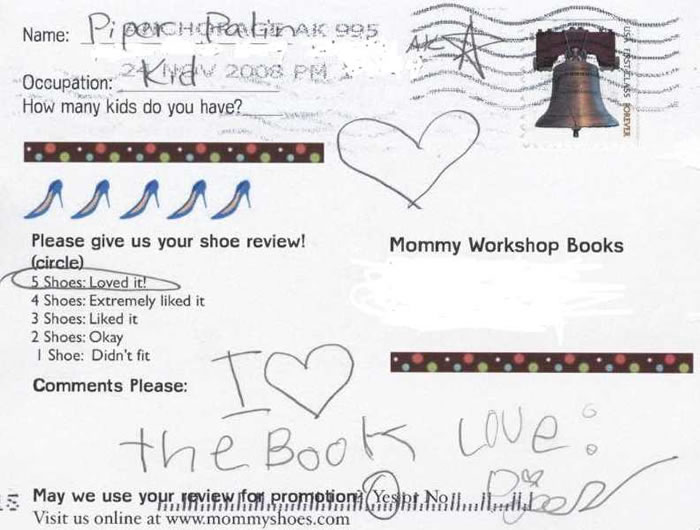 Name: Piper Palin
ANCHORAGE AK 995
AK
Occupation: Kid
24 NOV 2008 PM
How many kids do you have?
USA FIRST-CLASS FOREVER
Please give us your shoe review!
(circle)
5 Shoes: Loved it!
4 Shoes: Extremely liked it
3 Shoes: Liked it
2 Shoes: Okay
1 Shoe: Didn't fit
Mommy Workshop Books
Comments Please:
I
the Book LOVE:
Piper
May we use your review for promotion? Yes or No
Visit us online at www.mommyshoes.com